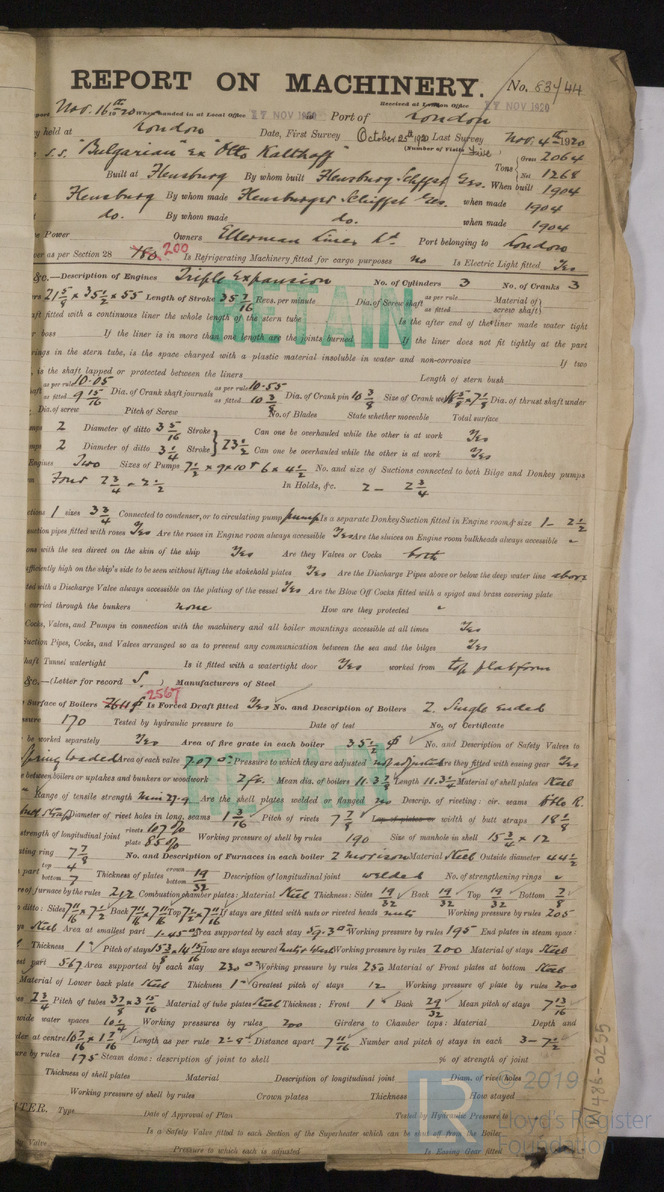 REPORT ON MACHINERY. No. 83744
Received at London Office 17 NOV 1920
Nov. 16th 1920 When handed in at Local Office 17 NOV 1920 Port of London
held at London Date, First Survey October 25th 1920 Last Survey Nov. 4th 1920
(Number of Visits Five)
S.S. "Bulgarian" ex "Otto Kalthoff" Tons Gross 2064 Net 1268
Built at Flensburg By whom built Flensburg Schffst. Ges. When built 1904
Flensburg By whom made Flensburger Schiffst Ges. when made 1904
do. By whom made do. when made 1904
Power Owners Ellerman Lines Ld Port belonging to London
as per Section 28 200 Is Refrigerating Machinery fitted for cargo purposes no Is Electric Light fitted Yes
&c.—Description of Engines Triple Expansion No. of Cylinders 3 No. of Cranks 3
21 5/8 × 35 1/2 × 55 Length of Stroke 35 7/16 Revs. per minute Dia. of Screw shaft as per rule as fitted Material of screw shaft
fitted with a continuous liner the whole length of the stern tube Is the after end of the liner made water tight
boss If the liner is in more than one length are the joints burned If the liner does not fit tightly at the part
in the stern tube, is the space charged with a plastic material insoluble in water and non-corrosive If two
is the shaft lapped or protected between the liners Length of stern bush
as per rule 10.05 as fitted 9 15/16 Dia. of Crank shaft journals as per rule 10.55 as fitted 10 3/8 Dia. of Crank pin 10 3/8 Size of Crank webs Dia. of thrust shaft under
Dia. of screw Pitch of Screw No. of Blades State whether moveable Total surface
2 Diameter of ditto 3 5/16 Stroke 23 1/2 Can one be overhauled while the other is at work Yes
2 Diameter of ditto 3 1/4 Stroke Can one be overhauled while the other is at work Yes
Engines Two Sizes of Pumps 7 1/2 × 9 × 10 & 6 × 4 1/2 No. and size of Suctions connected to both Bilge and Donkey pumps
Four 2 3/4 - 2 1/2 In Holds, &c. 2 - 2 3/4
1 sizes 3 3/4 Connected to condenser, or to circulating pump pump Is a separate Donkey Suction fitted in Engine room & size 1 - 2 1/2
suction pipes fitted with roses Yes Are the roses in Engine room always accessible Yes Are the sluices on Engine room bulkheads always accessible
with the sea direct on the skin of the ship Yes Are they Valves or Cocks both
sufficiently high on the ship's side to be seen without lifting the stokehold plates Yes Are the Discharge Pipes above or below the deep water line above
with a Discharge Valve always accessible on the plating of the vessel Yes Are the Blow Off Cocks fitted with a spigot and brass covering plate
carried through the bunkers none How are they protected
Cocks, Valves, and Pumps in connection with the machinery and all boiler mountings accessible at all times Yes
Suction Pipes, Cocks, and Valves arranged so as to prevent any communication between the sea and the bilges Yes
Shaft Tunnel watertight Is it fitted with a watertight door Yes worked from top platform
&c.—(Letter for record S.) Manufacturers of Steel
Surface of Boilers 2567 Is Forced Draft fitted Yes No. and Description of Boilers 2 Single Ended
170 Tested by hydraulic pressure to Date of test No. of Certificate
be worked separately Yes Area of fire grate in each boiler 35 1/2 No. and Description of Safety Valves to
Spring loaded Area of each valve 7.07 Pressure to which they are adjusted not adjusted Are they fitted with easing gear Yes
between boilers or uptakes and bunkers or woodwork 2 ft. Mean dia. of boilers 11.3 7/8 Length Material of shell plates Steel
Range of tensile strength min 27.9 Are the shell plates welded or flanged no Descrip. of riveting: cir. seams Dble R.
Diameter of rivet holes in long. seams 1 3/16 Pitch of rivets 7 7/8 Lap of plates or width of butt straps 18 1/8
strength of longitudinal joint rivets 107% plate 85% Working pressure of shell by rules 190 Size of manhole in shell 15 3/4 × 12
ring 7 7/8 No. and Description of Furnaces in each boiler 2 Morison Material Steel Outside diameter 44 1/2
part top 4 bottom 7 Thickness of plates crown bottom 19/32 Description of longitudinal joint welded No. of strengthening rings
of furnace by the rules 212 Combustion chamber plates: Material Steel Thickness: Sides 19/32 Back 19/32 Top 19/32 Bottom 7/8
ditto: Sides 7 11/16 × 7 1/2 Back 7 11/16 × 7 11/16 Top 7 1/2 × 7 11/16 If stays are fitted with nuts or riveted heads nuts Working pressure by rules 205
Steel Area at smallest part 1.45 Area supported by each stay 59.3 Working pressure by rules 195 End plates in steam space:
Thickness 1" Pitch of stays 15 3/8 × 14 15/16 How are stays secured Working pressure by rules 200 Material of stays Steel
part 567 Area supported by each stay 230 Working pressure by rules 250 Material of Front plates at bottom Steel
Material of Lower back plate Steel Thickness 1" Greatest pitch of stays 12 Working pressure of plate by rules 200
2 3/4 Pitch of tubes 3 7/8 × 3 15/16 Material of tube plates Steel Thickness: Front 1" Back 29/32 Mean pitch of stays 7 13/16
wide water spaces Working pressures by rules 200 Girders to Chamber tops: Material Depth and
at centre Length as per rule Distance apart 7 11/16 Number and pitch of stays in each 3 - 7 1/2
by rules 175 Steam dome: description of joint to shell % of strength of joint
Thickness of shell plates Material Description of longitudinal joint Diam. of rivet holes
Working pressure of shell by rules Crown plates Thickness How stayed
Type Date of Approval of Plan Tested by Hydraulic Pressure
Is a Safety Valve fitted to each Section of the Superheater which can be shut off from the Boiler
Pressure to which each is adjusted Is Easing Gear fitted
RETAIN
RETAIN
W486-0255
LR
© 2019
Lloyd's Register
Foundation